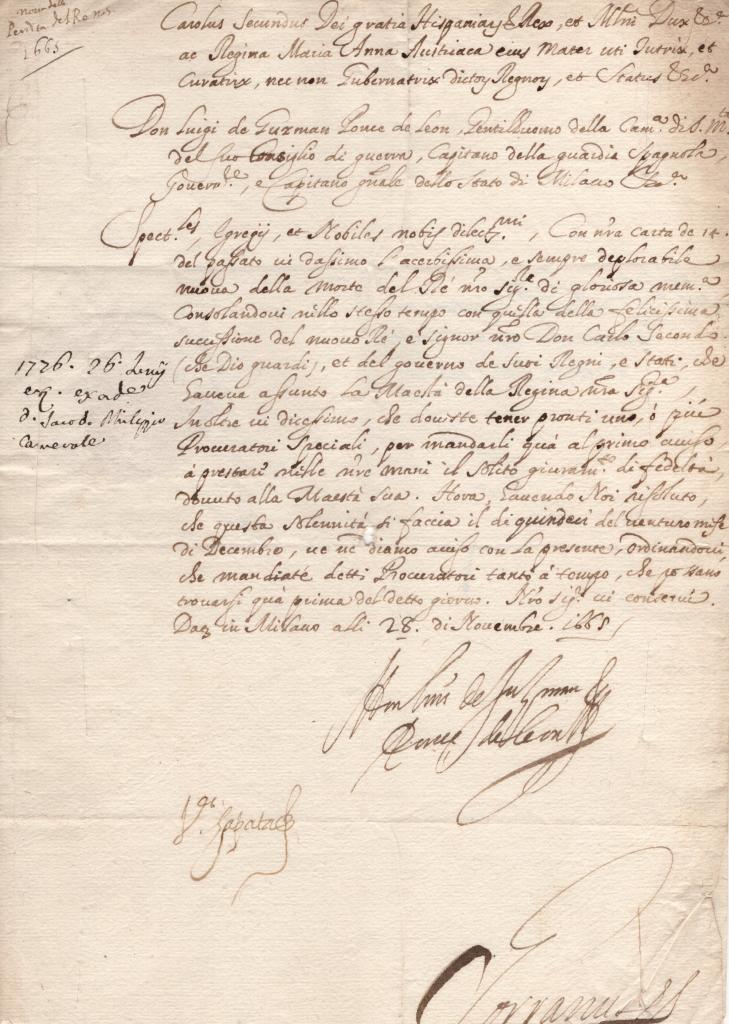 1665
Carolus Secundus Dei gratia Hispaniarʒ &c Rex, et Mlni Dux &c.ª
ac Regina Maria Anna Austriaca eius Mater uti Tutrix, et
Curatrix, nec non Gubernatrix dictoʒ Regnoʒ, et Status &c.ª
Don Luigi de Guzman Ponce de Leon, Gentilhuomo della Cam.ª di S. M.tà
del suo Consiglio di guerra, Capitano della guardia Spagnola,
Govern.re, e Capitano gñale dello Stato di Milano &c.ª
Spect.les, Egregij, et Nobiles nobis dilect.mi, Con nr̃a carta de 14.
del passato vi dassimo l'acerbissima, e sempre deplorabile
nuova della morte del Rè nr̃o sig.re di gloriosa mem.ª
Consolandovi nello stesso tempo con quella della felicissima
successione del nuovo Rè, e signor nr̃o Don Carlo Secondo
(che Dio guardi), et del governo de suoi Regni, e Stati, che
haveva assunto La Maestà della Regina nr̃a Sig.ra,
Inoltre vi dicessimo, che doveste tener pronti uno, ò più
Procuratori Speciali, per mandarli quà al primo aviso,
à prestare nelle nr̃e mani il solito giuram.to di fedeltà,
dovuto alla Maestà Sua. Hora, havendo Noi risoluto,
che questa solennità si faccia il dì quindeci del venturo mese
di Decembre, ve ne diamo aviso con La presente, ordinandovi,
che mandiate detti Procuratori tanto à tempo, che possano
trovarsi quà prima del detto giorno. Nr̃o sig.re vi conservi.
Datʒ in Milano alli 28. di Novembre. 1665
1726. 26. Junij
ex. 
d. Jacobi Philippi
Carnevale
Don Luis de Guzman
Ponce de Leon
V.
Zapata